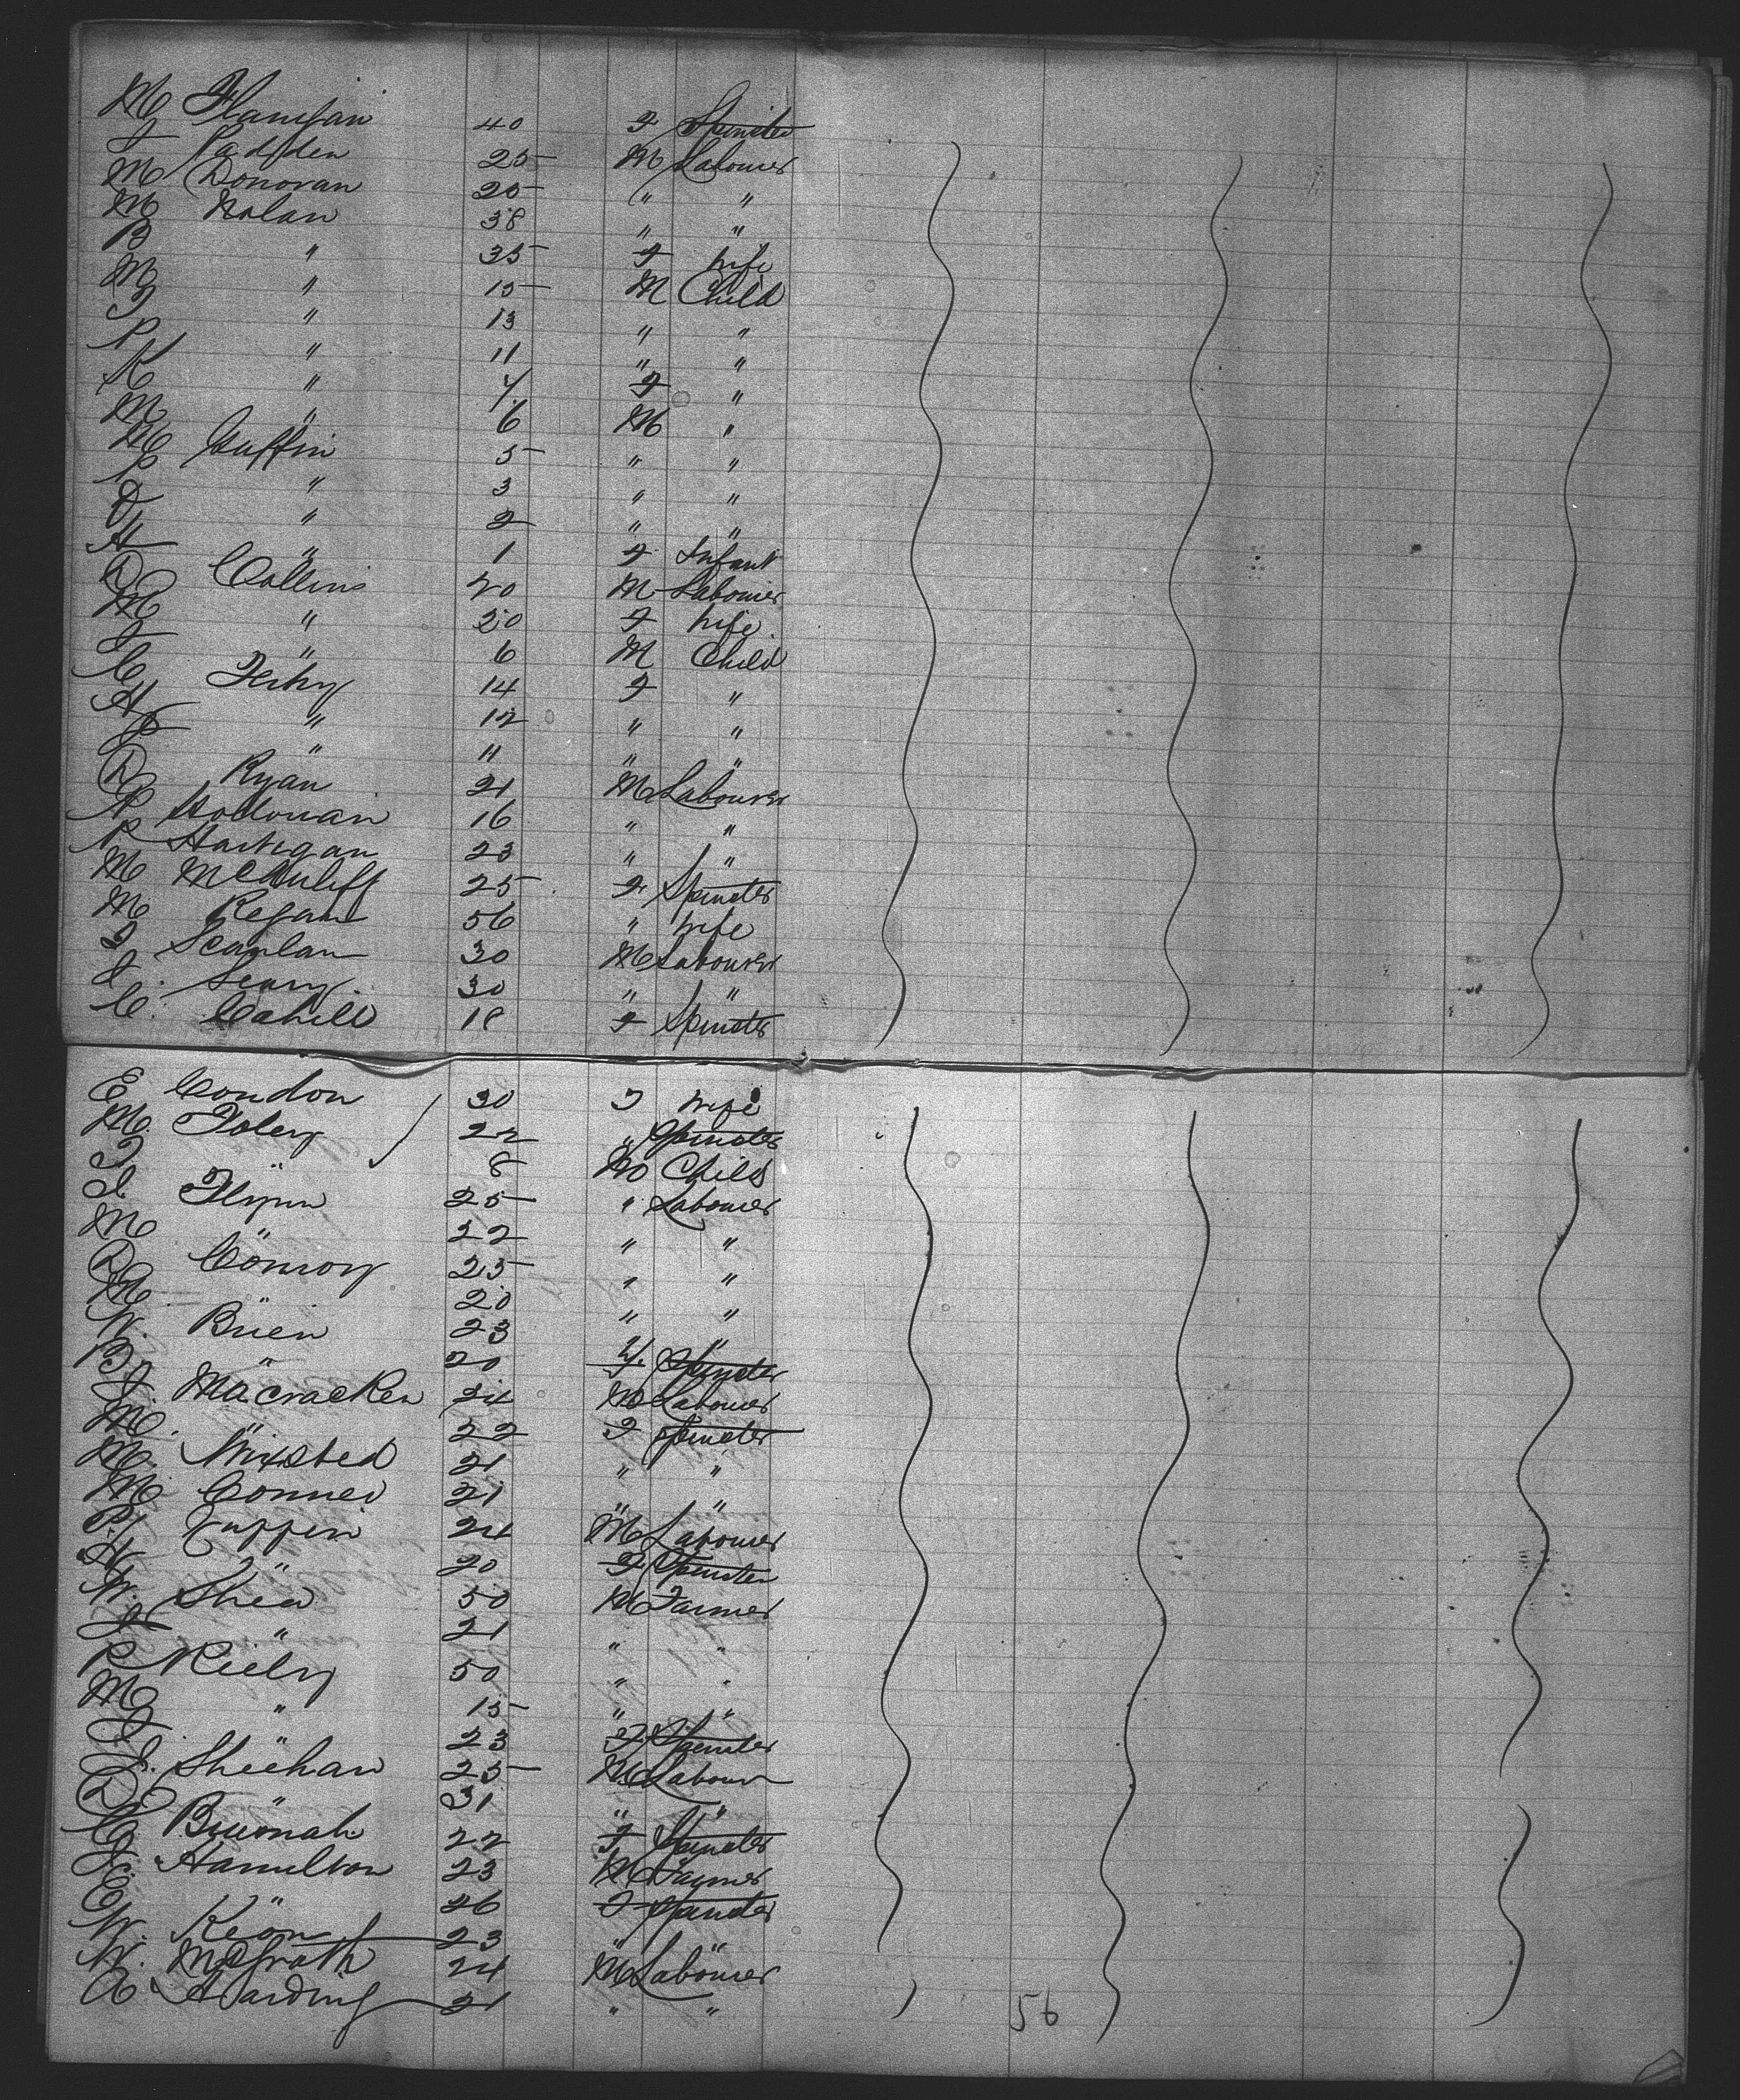 M Flanigan 40 F Spinster
J Padden 25 M Labourer
M Donovan 25 " "
M Nolan 38 " "
B " 35 F Wife
M " 15 M Child
J " 13 " "
P " 11 " "
K " 7 F "
M " 6 M "
M Guffin 5 " "
P " 3 " "
D " 2 " "
H " 1 F Infant
D Collins 20 M Labourer
M " 20 F Wife
J " 6 M Child
C 14 F "
H " 12 " "
" 11 " "
D Ryan 21 M Labourer
P 16 " "
P Hartigan 23 " "
M McAuliff 25 F Spinster
M Regan 56 " Wife
J Scanlan 30 M Labourer
J 30 " "
C. Cahill 18 F Spinster
E Condon 30 F Wife
M. Foley 22 " Spinster
J " 8 M Child
J. Flynn 25 " Labourer
M " 22 " "
D Conroy 25 " "
M " 20 " "
W. Brien 23 " "
B " 20 F. Spinster
J. Macracken 24 M Labourer
M. " 22 F Spinster
M. Wixsted 21 " "
M Conner 21 " "
P. 24 M Labourer
" 20 F Spinster
W. Shea 50 M Farmer
J " 21 " "
P Rieley 50 " "
M " 15 " "
J " 23 F Spinster
J. Sheehan 25 M Labour
D " 31 " "
C 22 F Spinster
J. Hamilton 23 M Farmer
E. " 26 F Spinster
W. Keon 23 " "
W. McGrath 24 M Labourer
A Harding 21 " "
56